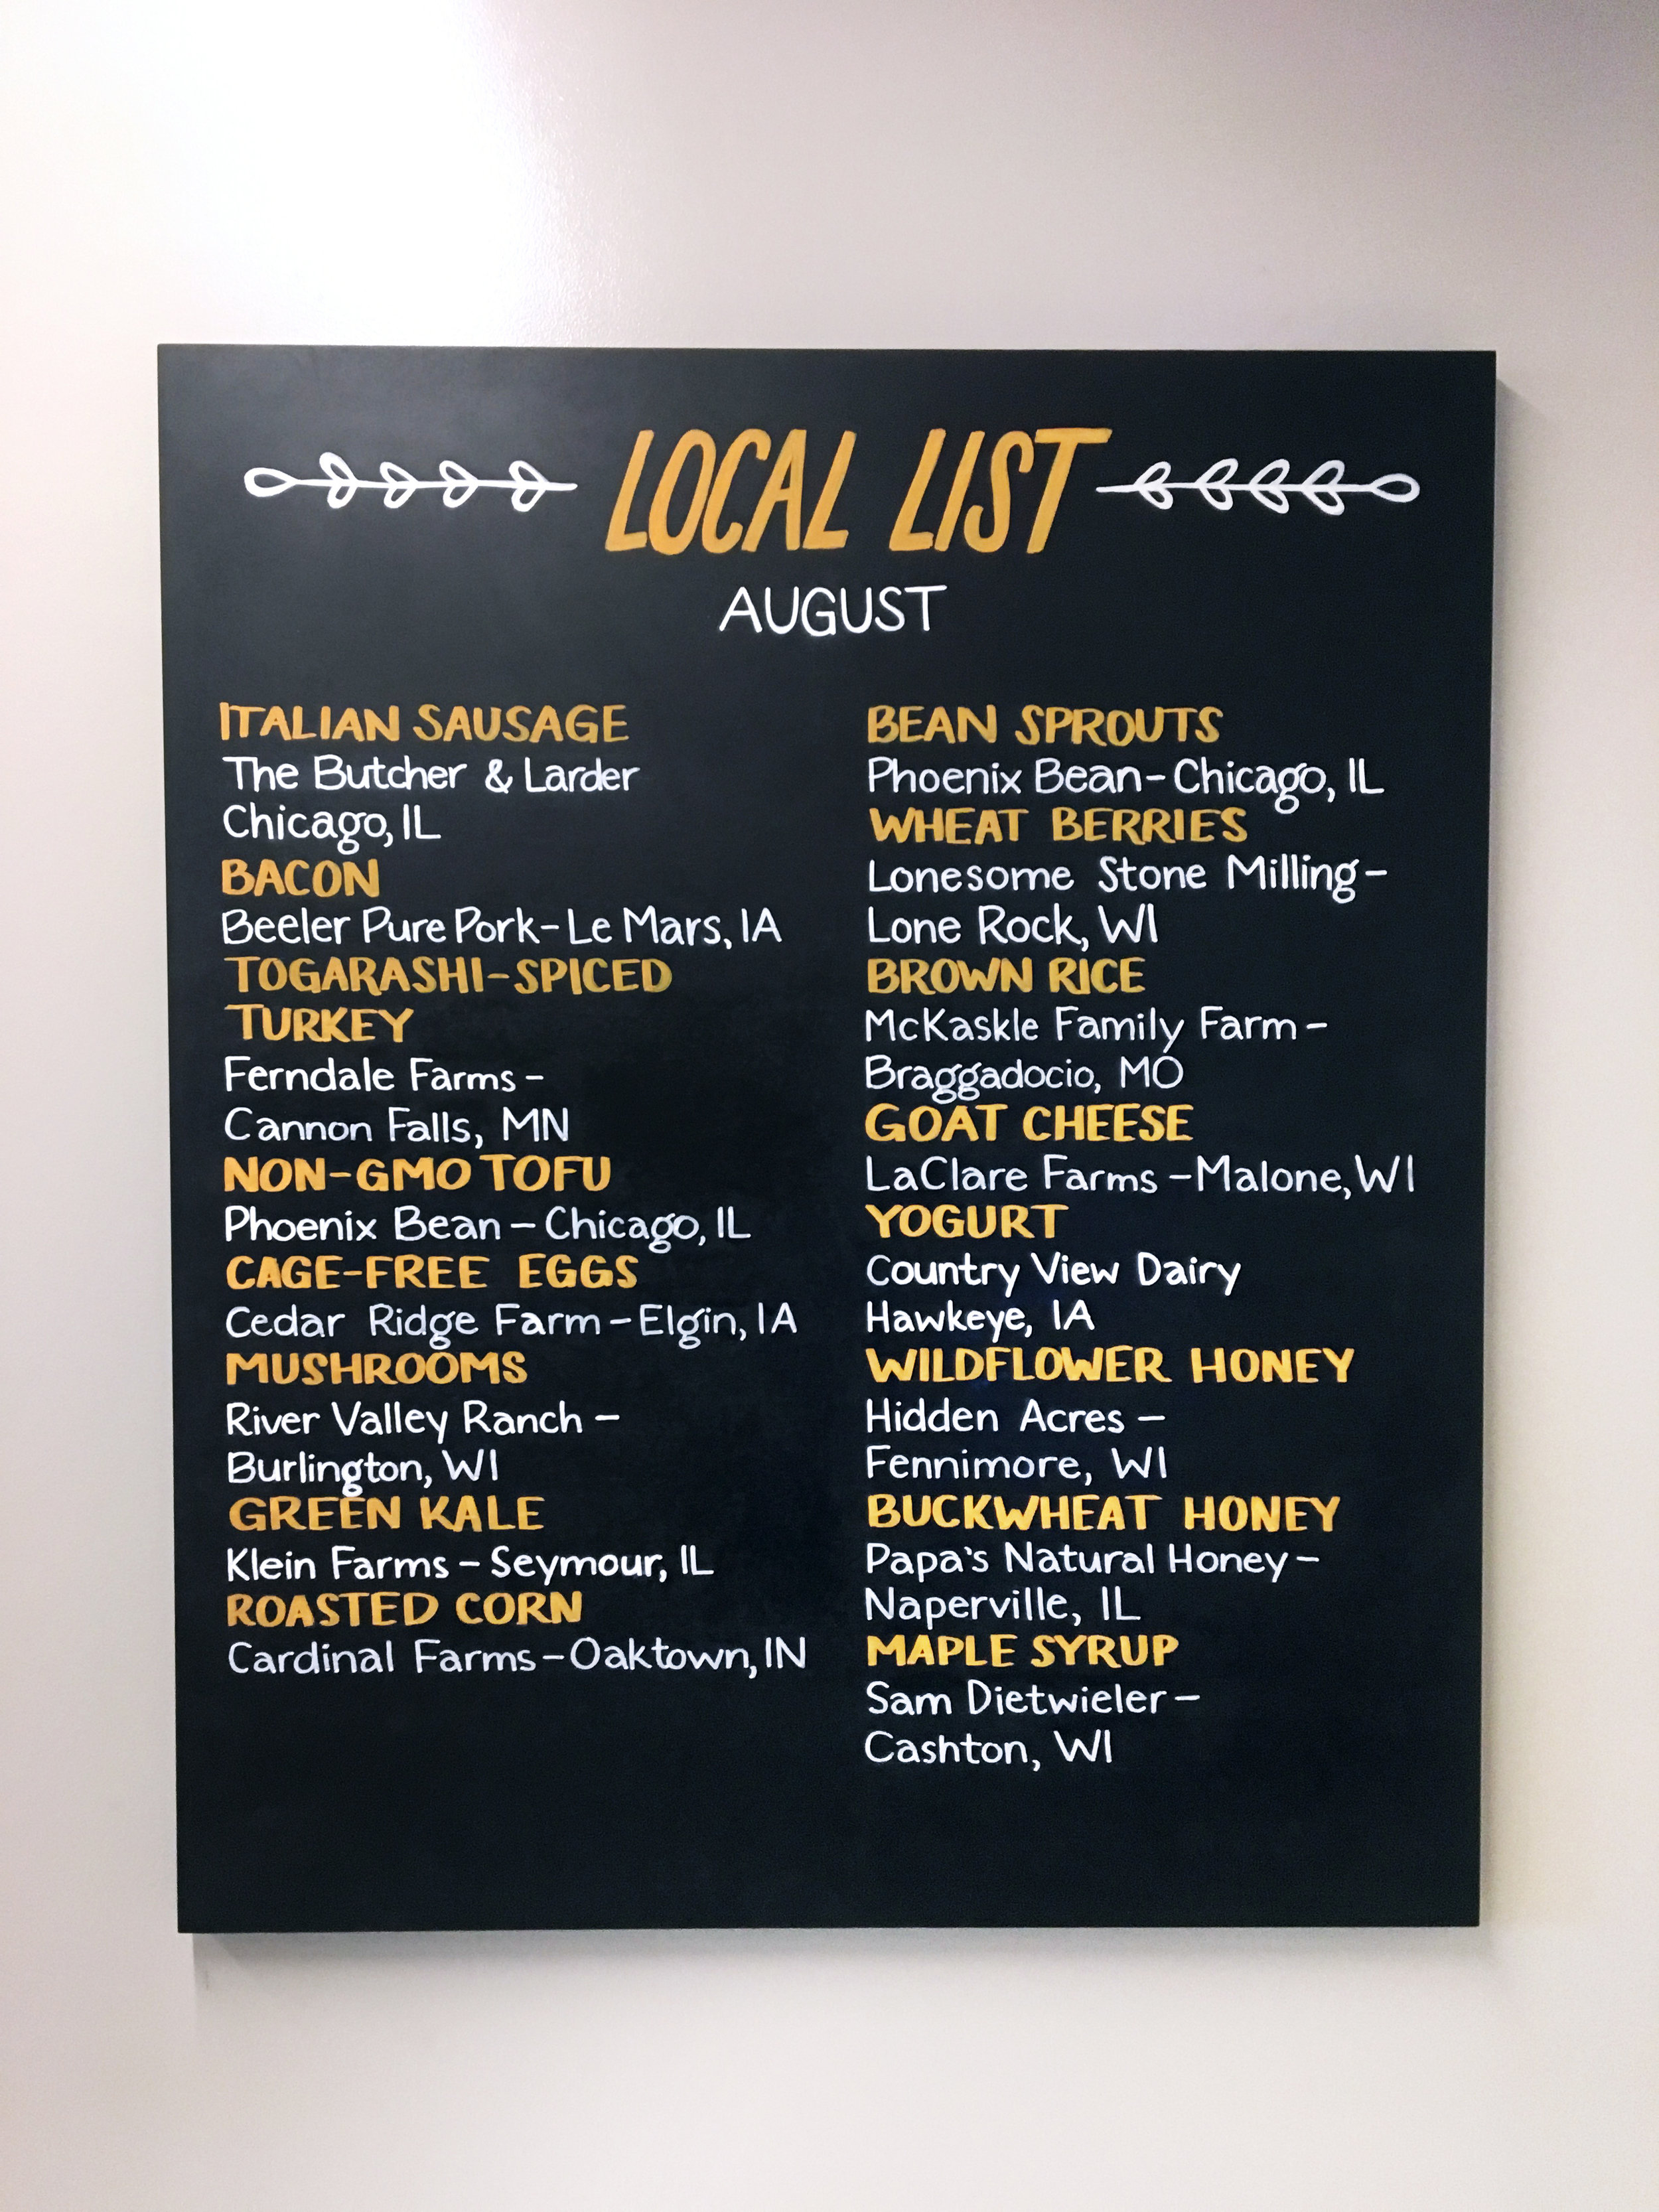 LOCAL LIST
AUGUST
ITALIAN SAUSAGE
The Butcher & Larder
Chicago, IL
BACON
Beeler Pure Pork - Le Mars, IA
TOGARASHI-SPICED
TURKEY
Ferndale Farms -
Cannon Falls, MN
NON-GMO TOFU
Phoenix Bean - Chicago, IL
CAGE-FREE EGGS
Cedar Ridge Farm - Elgin, IA
MUSHROOMS
River Valley Ranch -
Burlington, WI
GREEN KALE
Klein Farms - Seymour, IL
ROASTED CORN
Cardinal Farms - Oaktown, IN
BEAN SPROUTS
Phoenix Bean - Chicago, IL
WHEAT BERRIES
Lonesome Stone Milling -
Lone Rock, WI
BROWN RICE
McKaskle Family Farm -
Braggadocio, MO
GOAT CHEESE
LaClare Farms - Malone, WI
YOGURT
Country View Dairy
Hawkeye, IA
WILDFLOWER HONEY
Hidden Acres -
Fennimore, WI
BUCKWHEAT HONEY
Papa's Natural Honey -
Naperville, IL
MAPLE SYRUP
Sam Dietwieler -
Cashton, WI